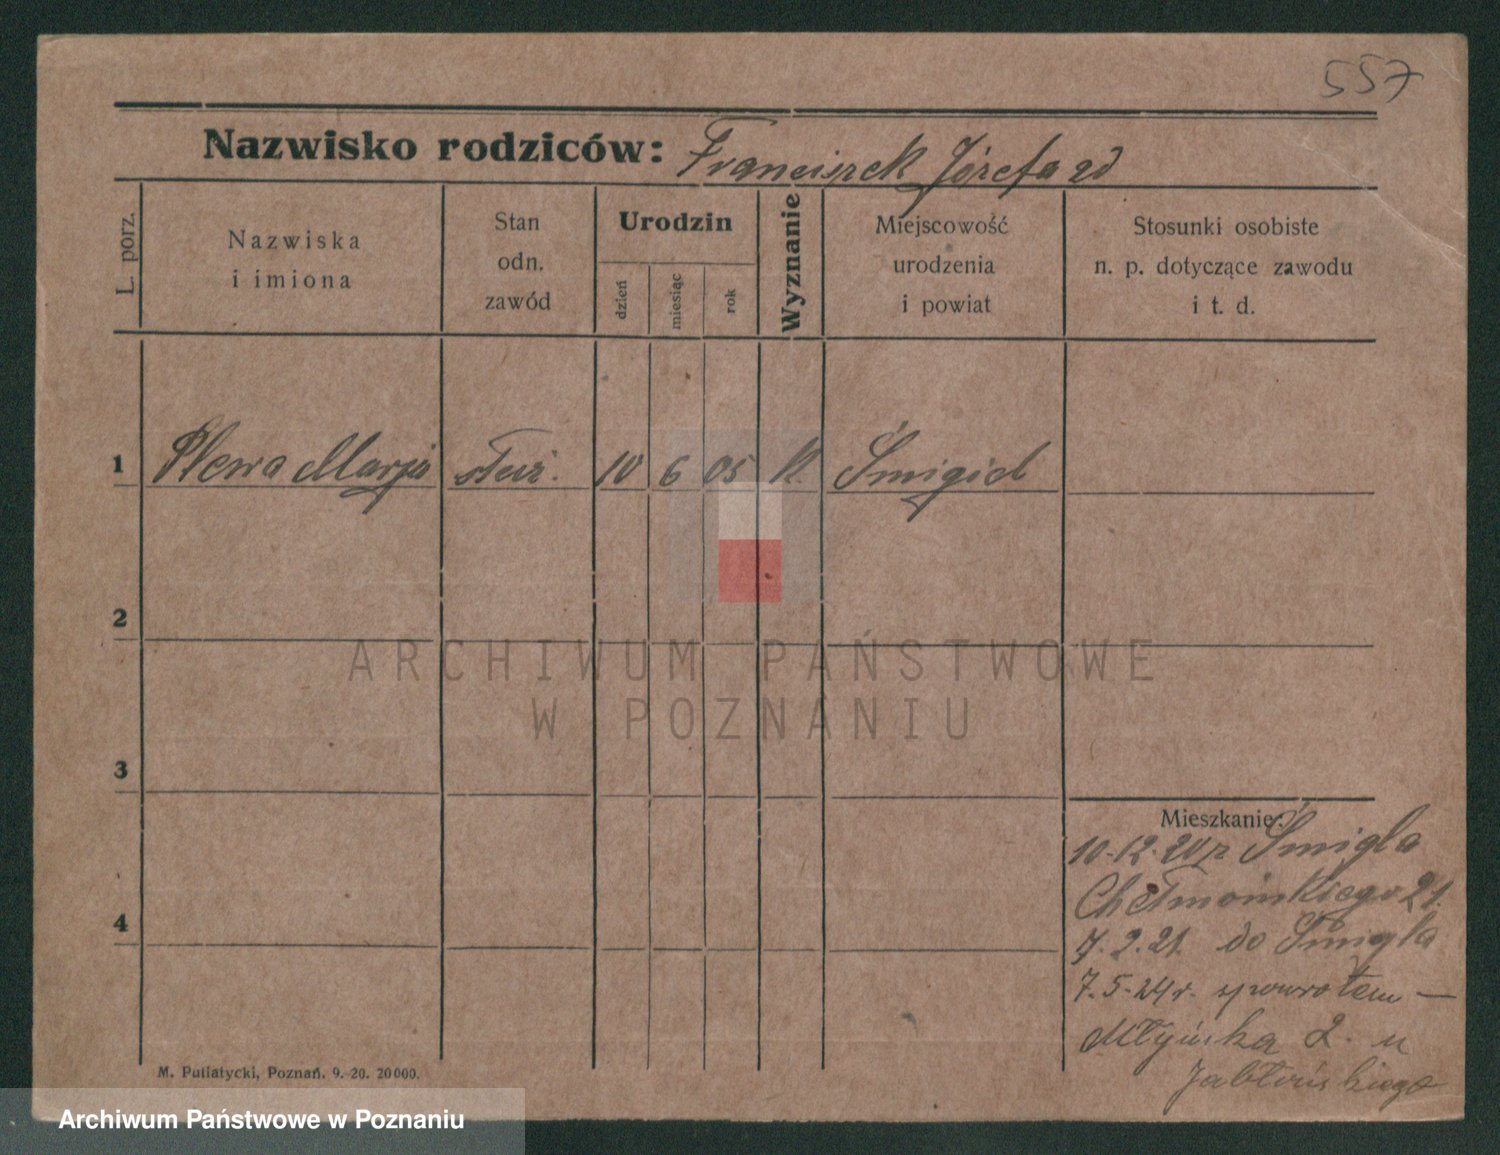 557
Nazwisko rodziców: Franciszek Józefa zd
L. porz.
Nazwiska
i imiona
Stan
odn.
zawód
Urodzin
dzień
miesiąc
rok
Wyznanie
Miejscowość
urodzenia
i powiat
Stosunki osobiste
n. p. dotyczące zawodu
i t. d.
1 Plewa Marja służ. 10 6 05 k. Śmigiel
2
ARCHIWUM PAŃSTWOWE
W POZNANIU
3
Mieszkanie:
10.12.20 z Śmigla
Chełmońskiego 21.
4
7.2.21. do Śmigla
7.5.24r. spowrotem —
Młyńska 2. u
Jabłońskiego
M. Putiatycki, Poznań. 9.-20. 20000.
Archiwum Państwowe w Poznaniu